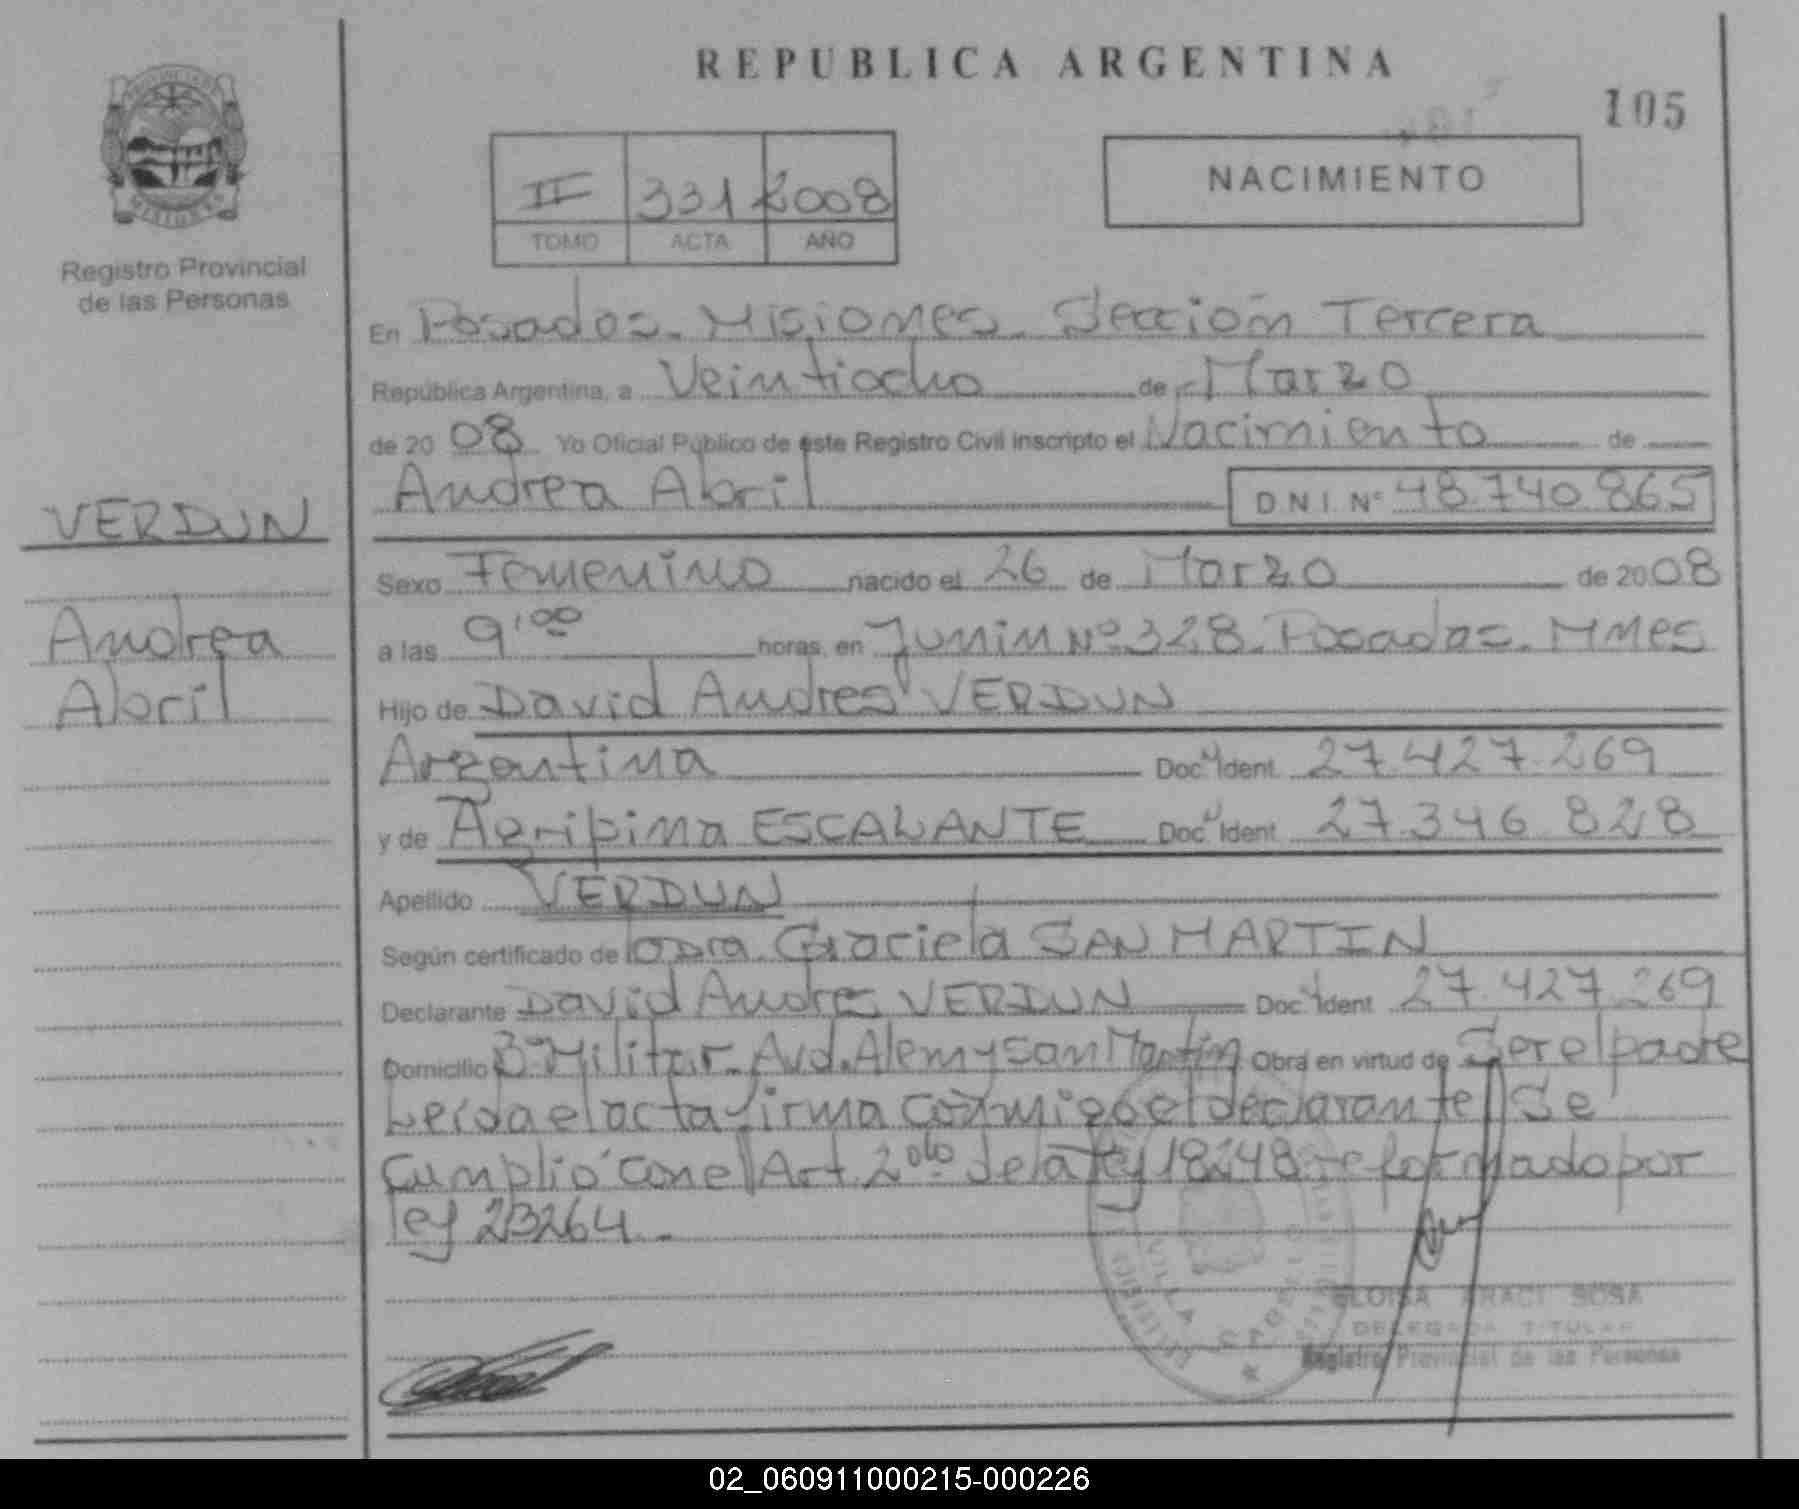 REPUBLICA ARGENTINA
105
PROVINCIA DE
MISIONES
Registro Provincial
de las Personas
II 331 2008
TOMO ACTA AÑO
NACIMIENTO
En Posadas - Misiones - Sección Tercera
República Argentina, a Veintiocho de Marzo
de 20 08 Yo Oficial Público de este Registro Civil inscripto el Nacimiento de
Andrea Abril D N I Nº 48.740.865
VERDUN
Andrea
Abril
Sexo Femenino nacido el 26 de Marzo de 20 08
a las 9'00 horas, en Junin Nº 328 - Posadas - Mnes
Hijo de David Andres VERDUN
Argentina Doc. Ident 27.427.269
y de Agripina ESCALANTE Doc. Ident 27.346.828
Apellido VERDUN
Según certificado de Graciela SAN MARTIN
Declarante David Andres VERDUN Doc. Ident 27.427.269
Domicilio Bº Militar - Avd. Alem y San Martin Obra en virtud de Ser el padre
Leída el acta firma conmigo el declarante Se
Cumplió con el Art. 2do de la ley 18248 reformado por
ley 23264 -
VILLA CABELLO
ELOISA ARACI SOSA
DELEGADA TITULAR
Registro Provincial de las Personas
02_060911000215-000226